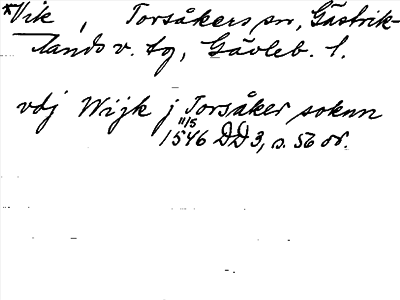 *Vik, Torsåkers sn, Gästrik-
lands v. tg, Gävleb. l.
vdj Wijk j Torsåker soknn
11/5
1546 DD3, s. 56 or.